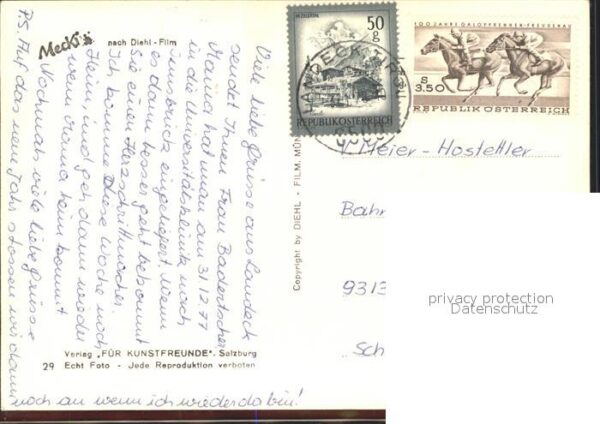 Mecki
nach Diehl-Film
Viele liebe Grüsse aus Landeck
sendet Ihnen Frau Badertscher
Mama hat man am 31/12.77
in die Universitätsklinik nach
Innsbruck eingeliefert. Wenn
es dann besser geht bekommt
Sie einen Herzschrittmacher.
Ich komme diese Woche noch
Heim, und geh dann wieder
wenn Mama heim kommt
Nochmals viele liebe Grüsse
PS. Auf das neue Jahr stossen wir dann
noch an wenn ich wieder da bin!
Verlag „FÜR KUNSTFREUNDE“, Salzburg
29 Echt Foto - Jede Reproduktion verboten
Copyright by DIEHL - FILM, MÜN
50
g
REPUBLIK ÖSTERREICH
100 JAHRE GALOPPRENNEN - FREUDENAU
S
3.50
REPUBLIK ÖSTERREICH
Meier-Hostettler
Bahn
9313
Sch
privacy protection
Datenschutz